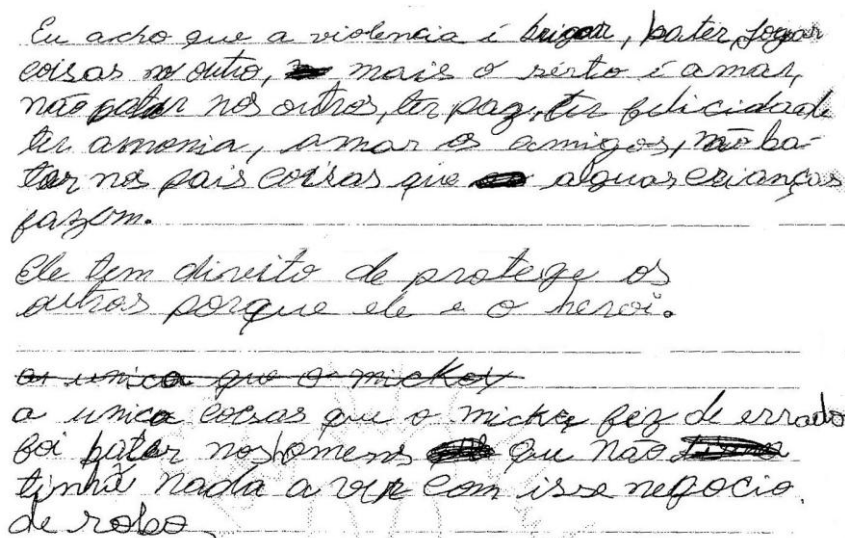 Eu acho que a violencia é brigar, bater, jogar
coisas no outro, mais o sérto é amar,
não bater nos outros, ter paz, ter felicidade
ter amonia, amar os amigos, não ba-
ter nos pais coisas que alguas crianças
fazem.
Ele tem direito de protege os
outros porque ele e o heroi.
a unica que o mickey
a unica coisas que o mickey fez de errado
foi bater nos homens que não
tinha nada a ver com isse negocio
de robo